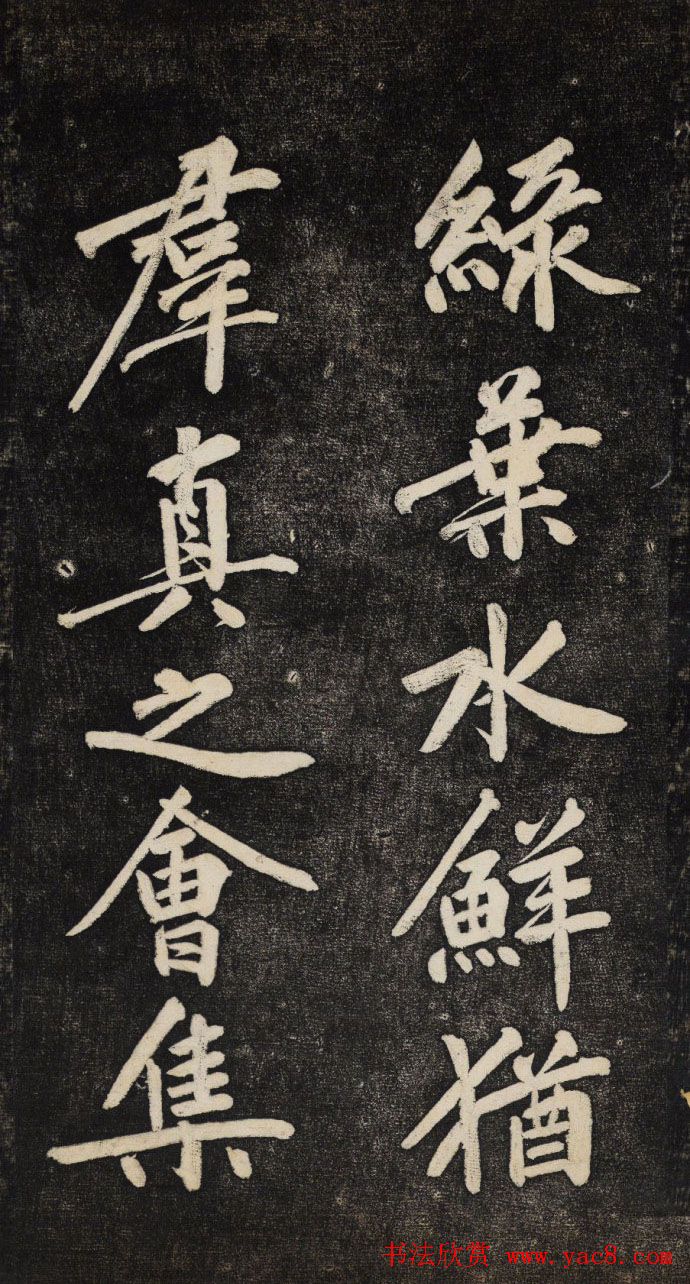 綠葉水鮮猶
羣真之會集
书法欣赏 www.yac8.com